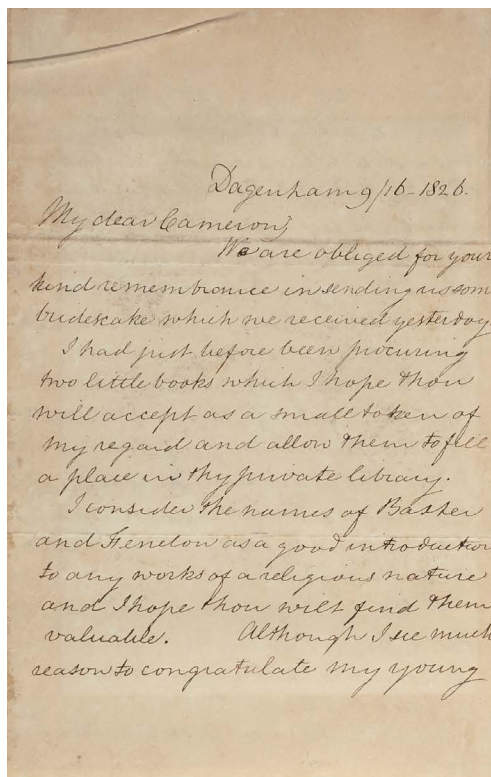 Dagenham 9/16-1826.
My dear Cameron,
We are obliged for your
kind remembrance in sending us som
bridescake which we received yesterday
I had just before been procuring
two little books which I hope thou
will accept as a small token of
my regard and allow them to fill
a place in thy private library.
I consider the names of Baxter
and Fenelon as a good introduction
to any works of a religious nature
and I hope thou wilt find them
valuable. Although I see much
reason to congratulate my young